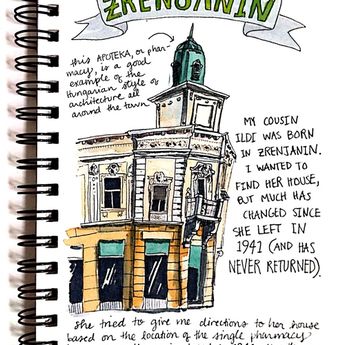 ZRENJANIN
this APOTEKA, or phar-
macy, is a good
example of the
Hungarian style of
architecture all
around the town.
MY COUSIN
ILDI WAS BORN
IN ZRENJANIN.
I WANTED TO
FIND HER HOUSE,
BUT MUCH HAS
CHANGED SINCE
SHE LEFT IN
1941 (AND HAS
NEVER RETURNED).
She tried to give me directions to her house
based on the location of the single pharmacy